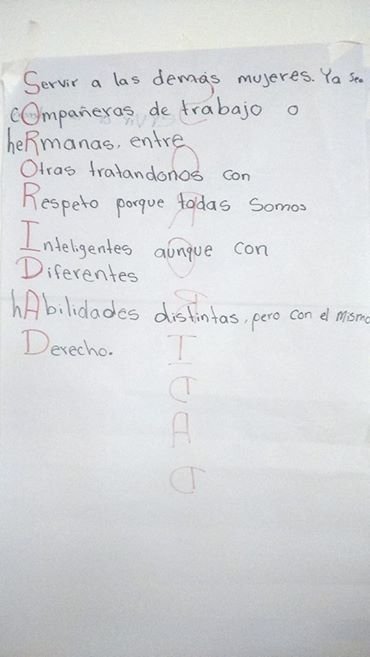 Servir a las demás mujeres. Ya sea
cOmpañeras de trabajo o
heRmanas, entre
Otras tratandonos con
Respeto porque todas somos
Inteligentes aunque con
Diferentes
hAbilidades distintas, pero con el mismo
Derecho.